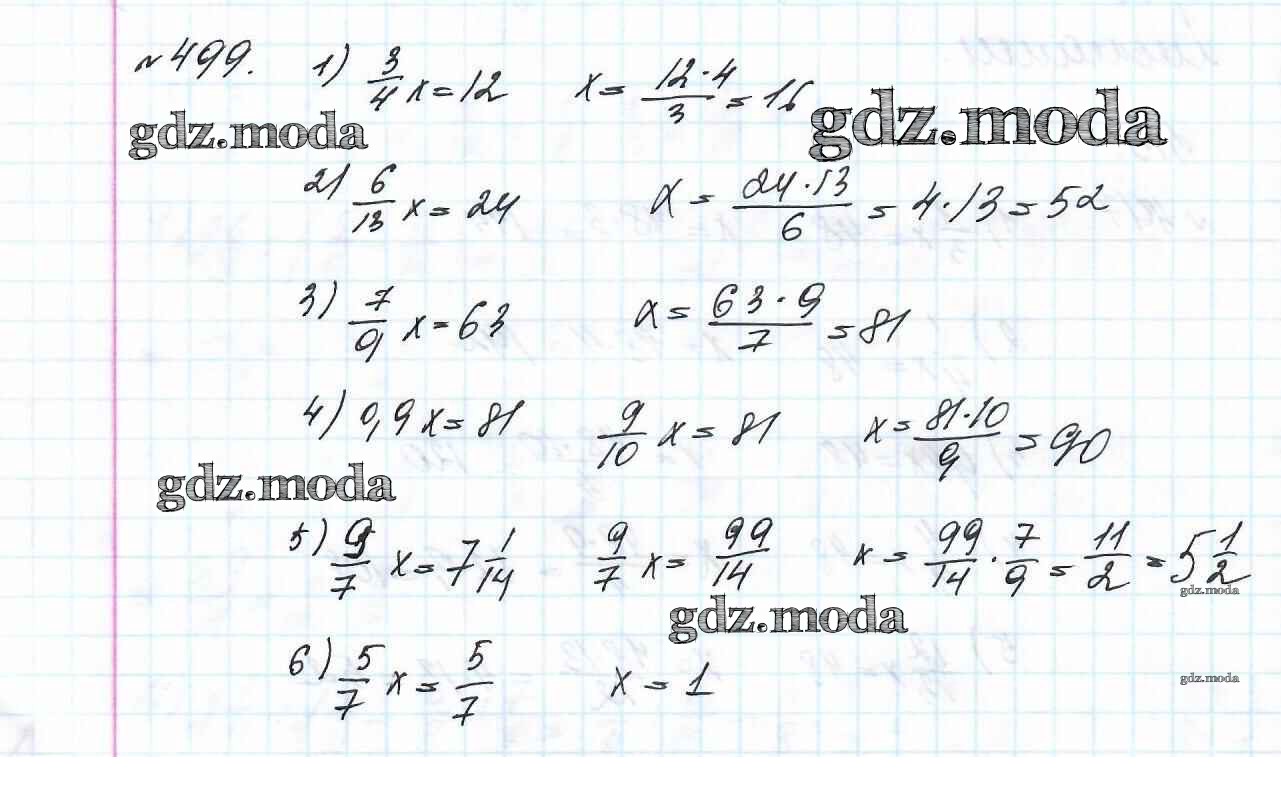 №499. 1) 3/4 x = 12 x = 12·4/3 = 16
gdz.moda gdz.moda
2) 6/13 x = 24 x = 24·13/6 = 4·13 = 52
3) 7/9 x = 63 x = 63·9/7 = 81
4) 0,9x = 81 9/10 x = 81 x = 81·10/9 = 90
gdz.moda
5) 9/7 x = 7 1/14 9/7 x = 99/14 x = 99/14 · 7/9 = 11/2 = 5 1/2
gdz.moda
gdz.moda
6) 5/7 x = 5/7 x = 1
gdz.moda